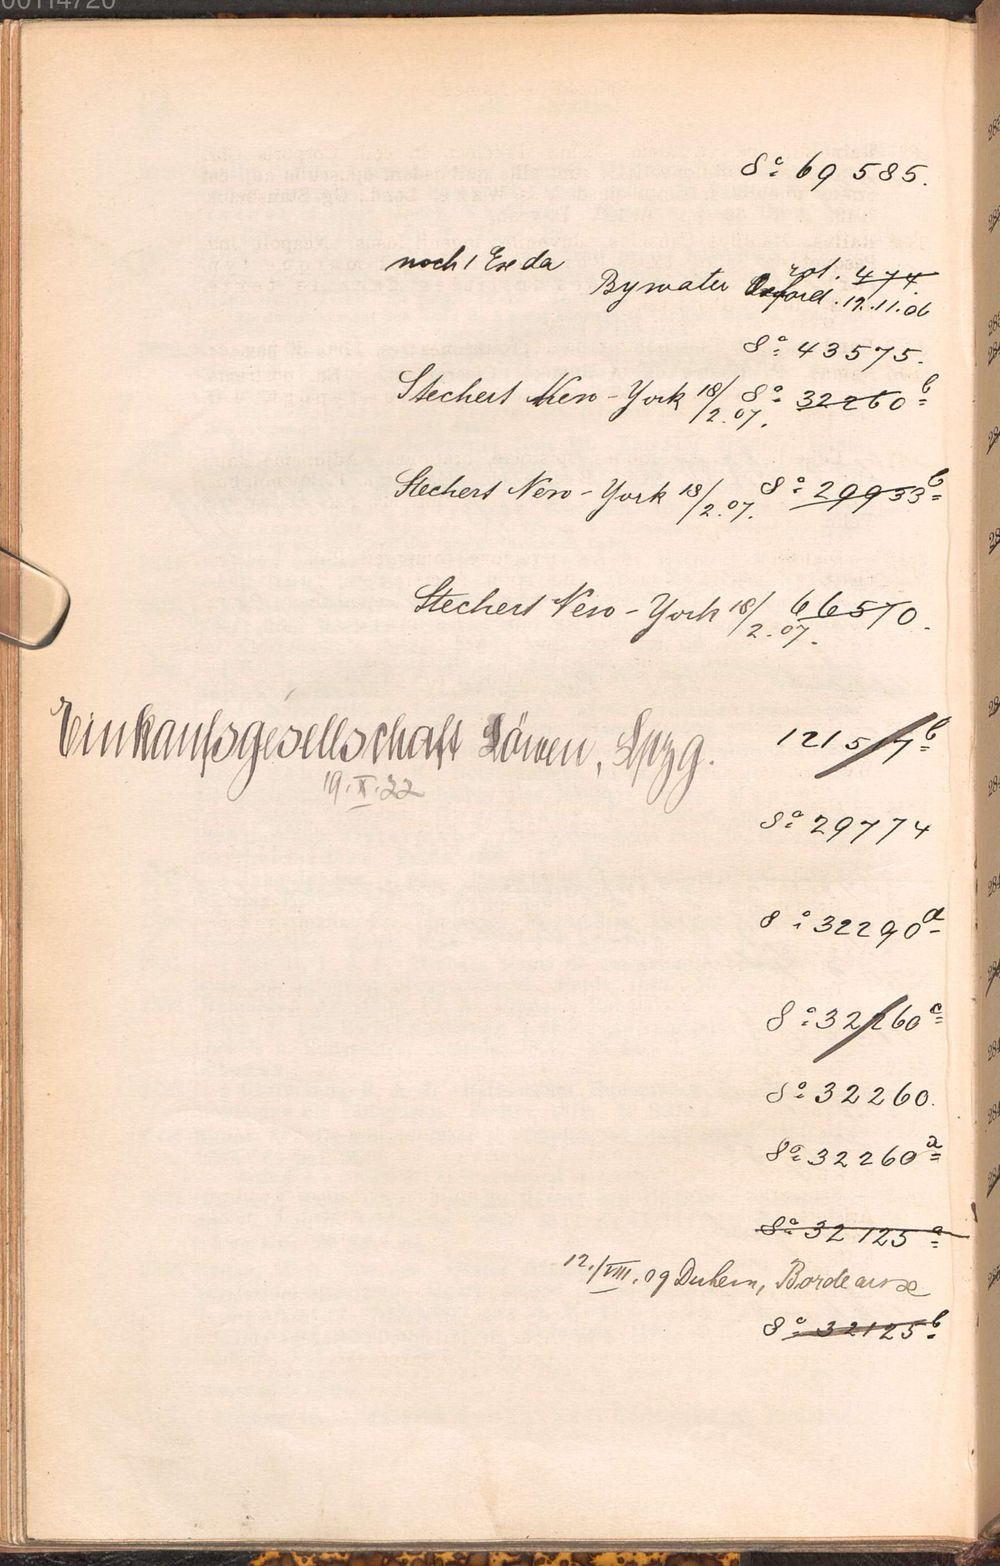 00114720
8° 69 585.
noch 1 Ex. da
rot. 474.
Bywater Oxford. 12.11.06
8° 43575.
Stechert New-York 18/2.07. 8° 32260 b
Stechert New-York 18/2.07. 8° 29933 b
Stechert New-York 18/2.07. 66570.
Einkaufsgesellschaft Löwen, Lpzg. 12157 b
19.X.22
8° 29774
8° 32290 a
8° 32260 c
8° 32260.
8° 32260 a
8° 32125 a
12./VIII.09 Duhem, Bordeaux
8° 32125 b